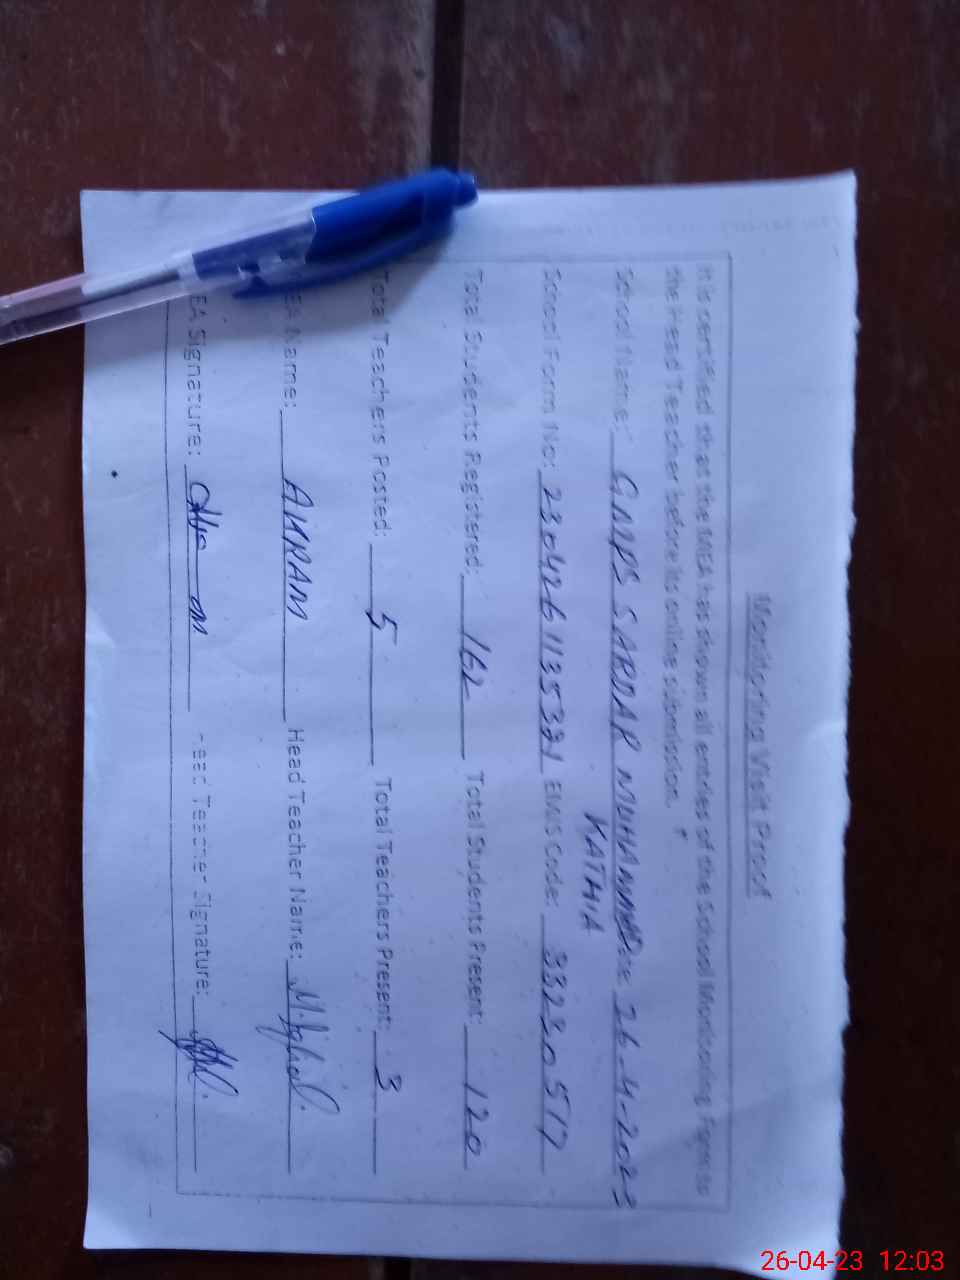 Monitoring Visit Proof
It is certified that the MEA has shown all entries of the School Monitoring Form to
the Head Teacher before its online submission.
School Name: GMPS SARDAR MUHAMMAD 26-4-2023
KATHIA
School Form No: 2304261135331 EMIS Code: 33230517
Total Students Registered: 162 Total Students Present: 120
Total Teachers Posted: 5 Total Teachers Present: 3
EA Name: AKRAM Head Teacher Name: M. Iqbal.
EA Signature: Head Teacher Signature:
26-04-23 12:03